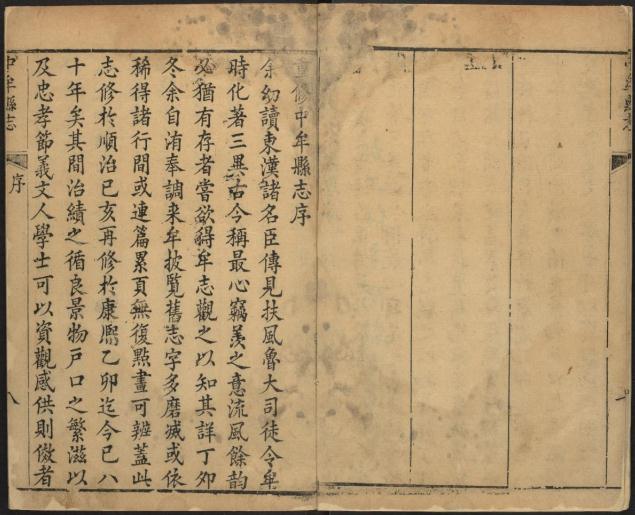 重修中牟縣志序
余幼讀東漢諸名臣傳見扶風魯大司徒令牟
時化著三異古今稱最心竊羨之意流風餘韵
必猶有存者嘗欲得牟志觀之以知其詳丁卯
冬余自洧奉調来牟披覧舊志字多磨滅或依
稀得諸行間或連篇累頁無復點畫可辨蓋此
志修於順治已亥再修於康熈乙卯迄今已八
十年矣其間治績之循良景物戸口之繁滋以
及忠孝節義文人學士可以資觀感供則傚者
中牟縣志
序